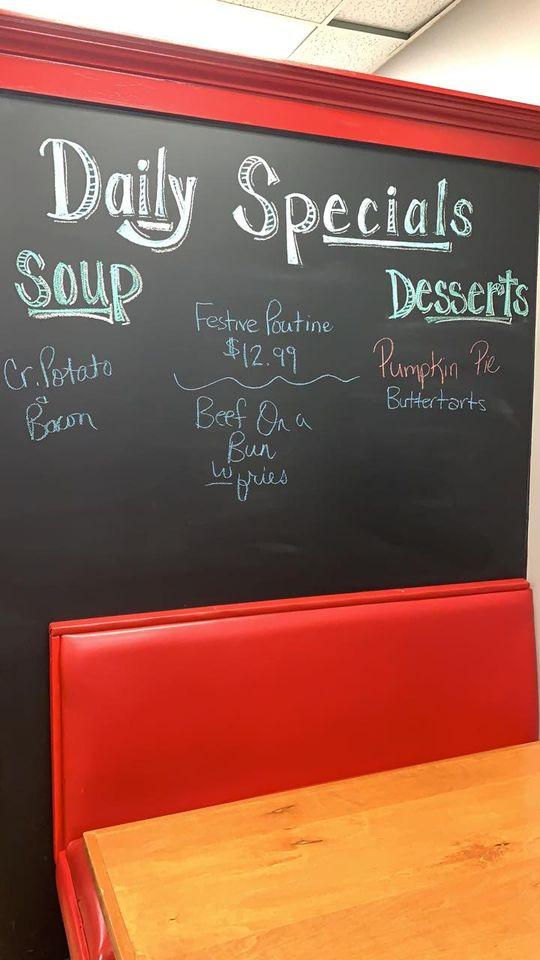 Daily Specials
Soup
Cr. Potato
&
Bacon
Festive Poutine
$12.99
Beef On a
Bun
w fries
Desserts
Pumpkin Pie
Buttertarts